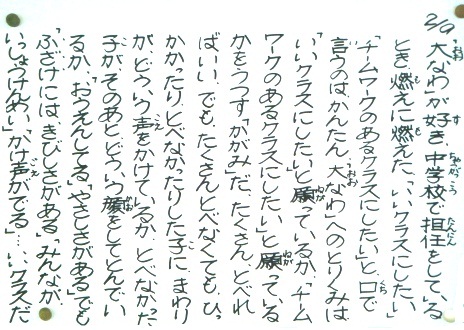 2/9 「大なわ」が好き。中学校で担任をしている
とき、燃えに燃えた。「いいクラスにしたい」
「チームワークのあるクラスにしたい」と、口で
言うのはかんたん。「大なわ」へのとりくみは
「いいクラスにしたい」と願っているか、「チーム
ワークのあるクラスにしたい」と願っている
かをうつす「かがみ」だ。たくさん、とべれ
ばいい。でも、たくさんとべなくても、ひっ
かかったり、とべなかったりした子に、まわり
がどういう声をかけているか、とべなかった
子がそのあと、どういう顔をしてとんでい
るか。「おうえんしてる」「やさしさがある」「でも
ふざけには、きびしさがある」「みんなが
いっしょうけんめい」「かけ声がでる」…いいクラスだ